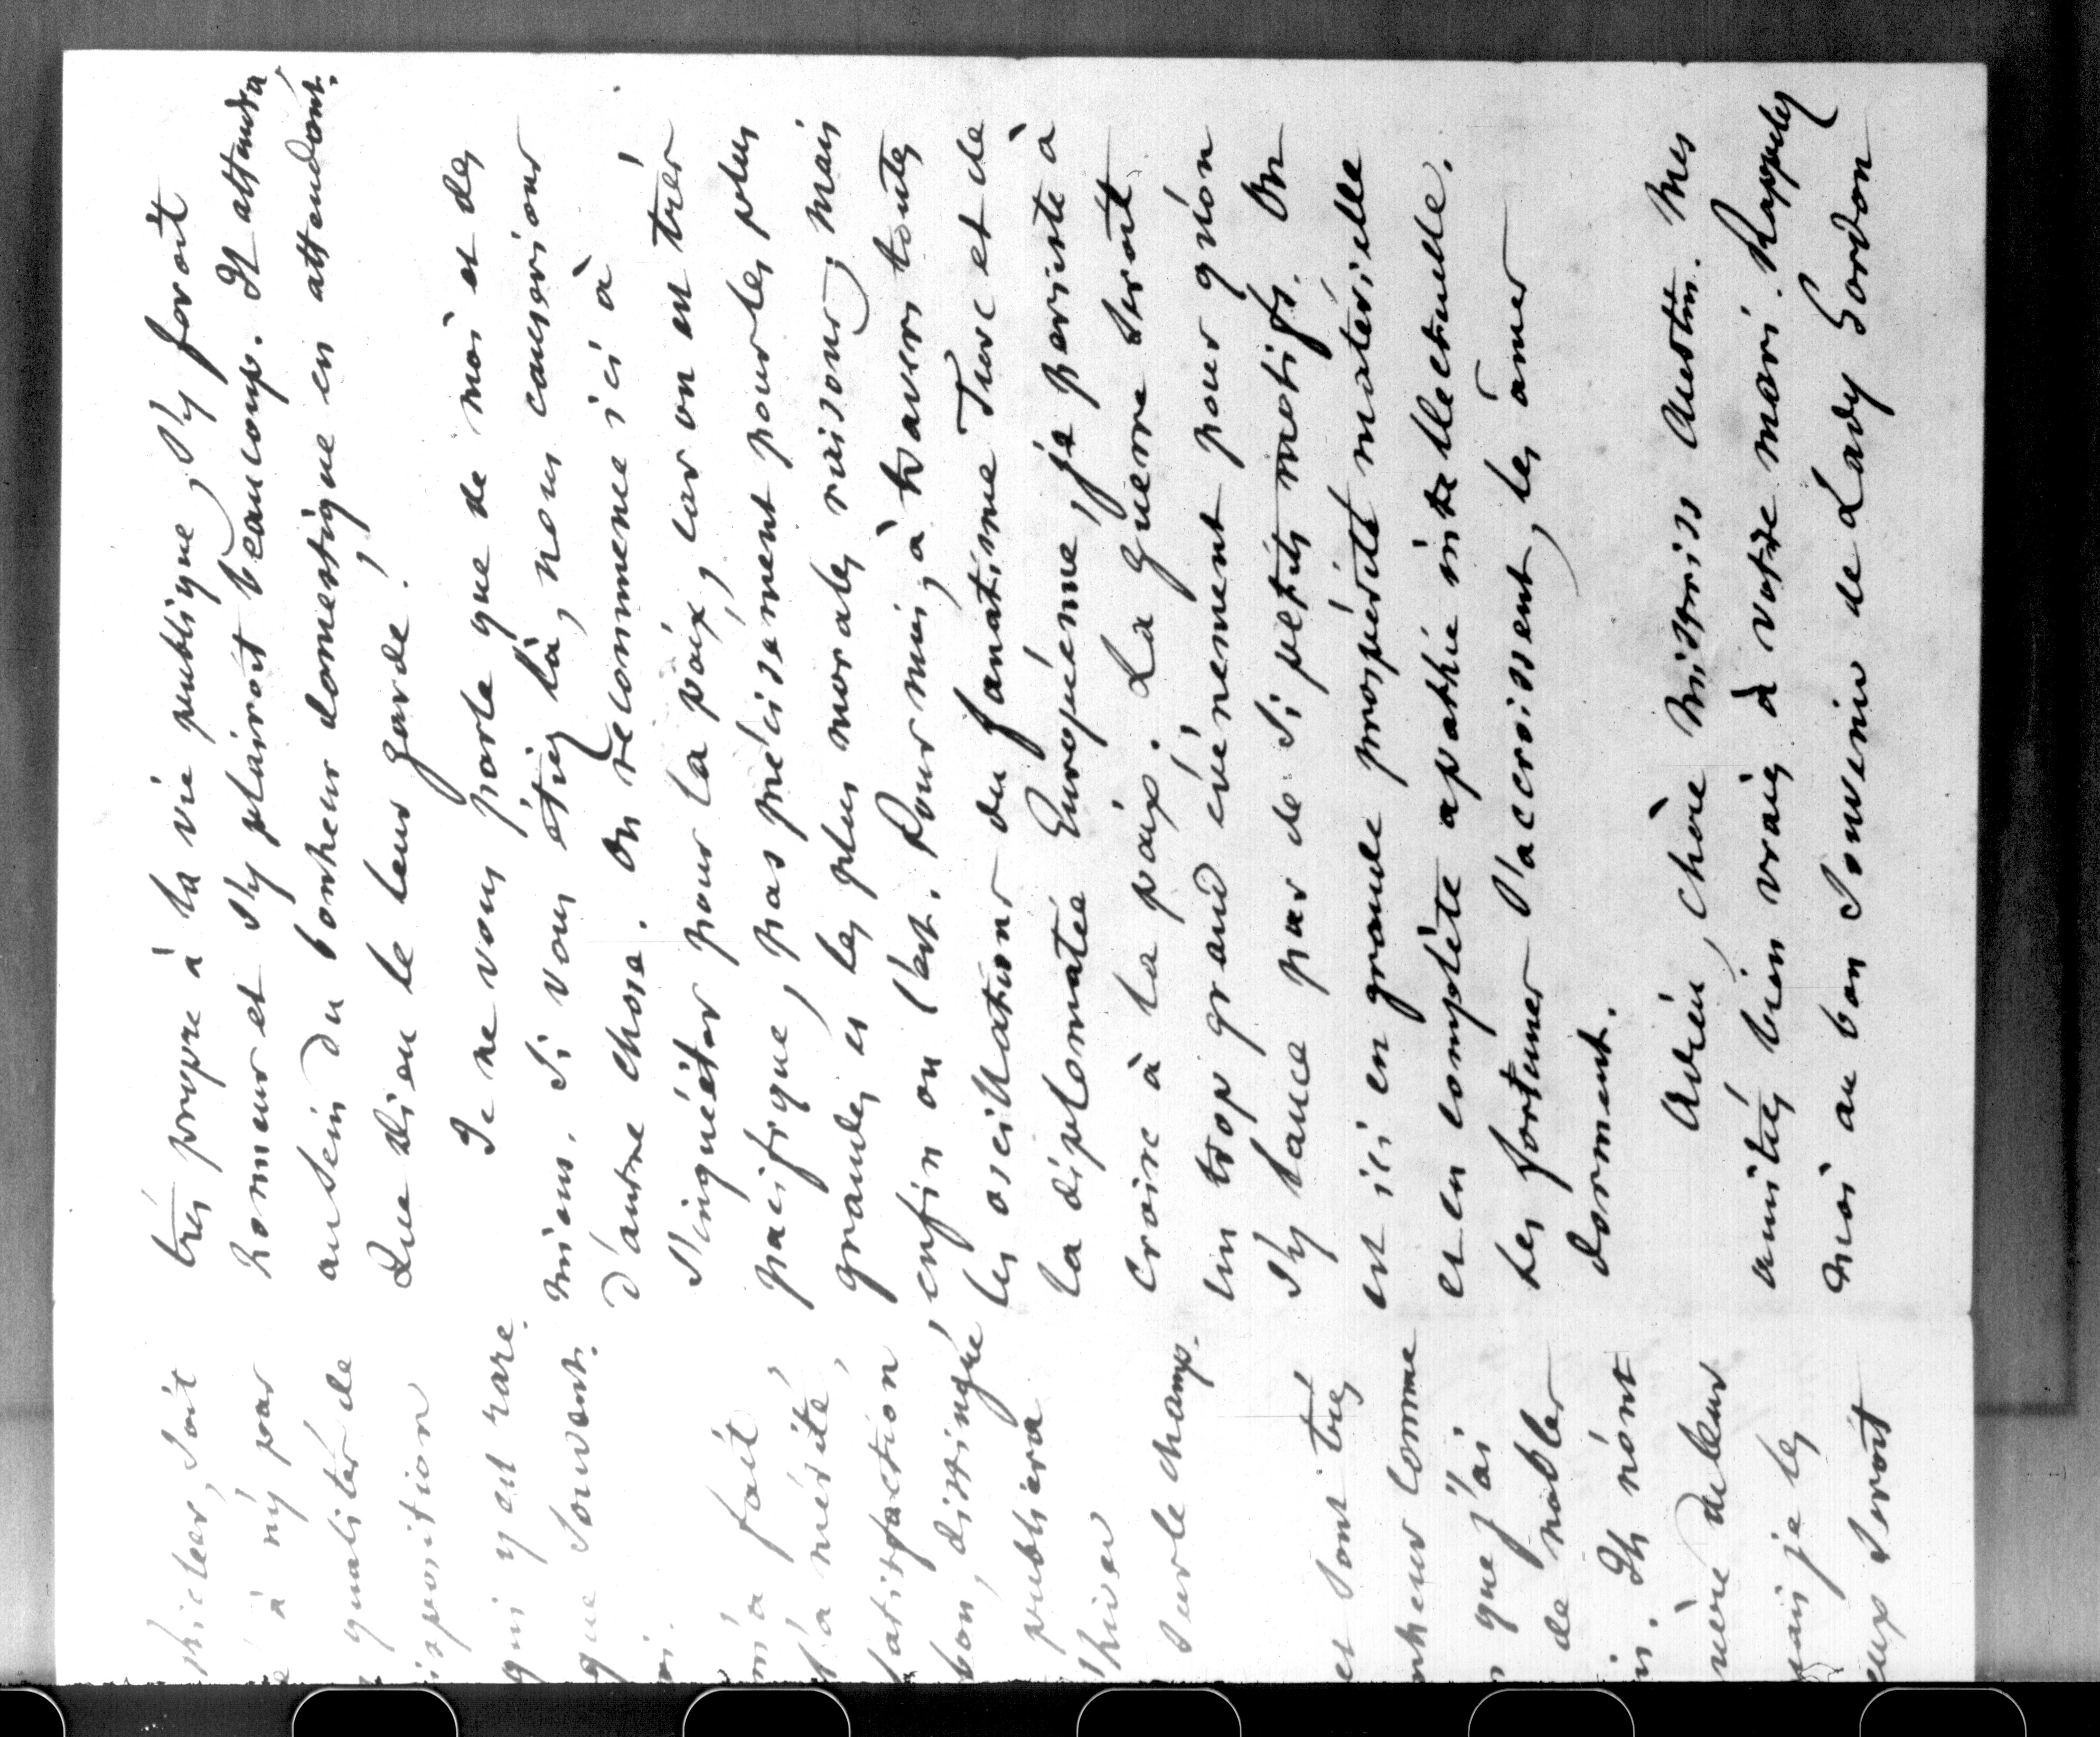 phicter, soit
à n'y par
qualités de
isposition
qui y est rare.
que souvent.
oi.
m'a fait,
l'a mérité,
satisfaction
bon, distingué
publiera
l'hiver
sur le champ.
et sont très
nheur comme
que j'ai
de nobles
Ils n'ont
mère de leur
mais je les
eux seroit
très propre à la vie publique, s'y feroit
honneur et s'y plairoit beaucoup. Il attendra
au sein du bonheur domestique en attendant.
Que Dieu le leur garde!
Je ne vous parle que de moi et des
miens. Si vous étiez là, nous causerions
d'autre chose. On recommence ici à
s'inquiéter pour la paix, car on est très
pacifique, pas précisément pour les plus
grandes et les plus morales raisons; mais
enfin on l'est. Pour moi, à travers toutes
les oscillations du fanatisme Turc et de
la diplomatie Européenne, je persiste à
croire à la paix. La guerre seroit
un trop grand événement pour qu'on
s'y lance par de si petits motifs. On
est ici en grande prospérité matérielle
et en complète apathie intellectuelle.
Les fortunes s'accroissent, les âmes
dorment.
Adieu, chère Mistriss Austin. Mes
amitiés bien vraies à votre mari. Rappelez
moi au bon souvenir de Lady Gordon